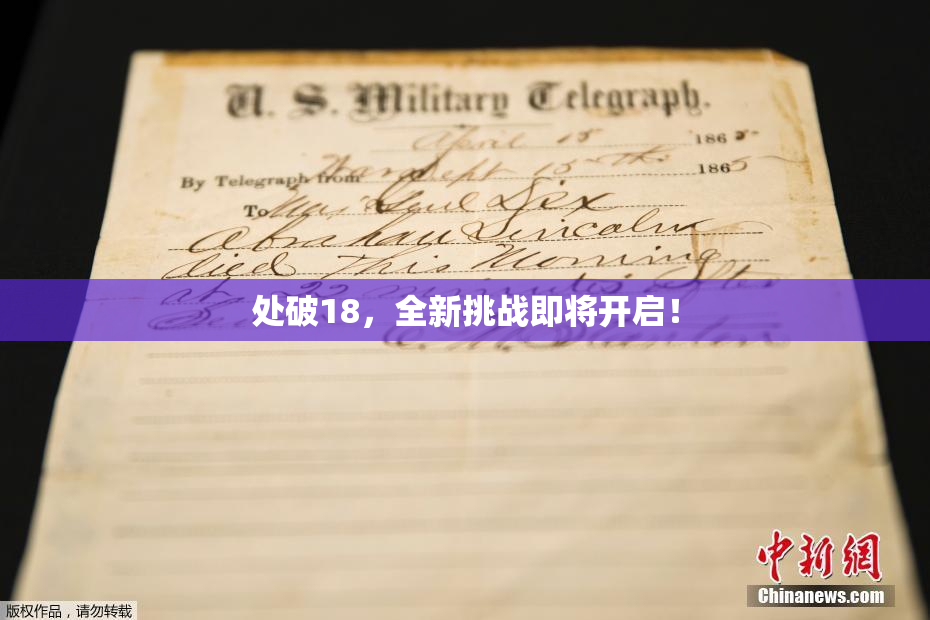 U. S. Military Telegraph.
April 15 1865
By Telegraph from War Dept 15th 1865
To Maj Genl Dix
Abraham Lincoln
died This Morning
at 22 minutes after
处破18，全新挑战即将开启！
中新网
Chinanews.com
版权作品，请勿转载